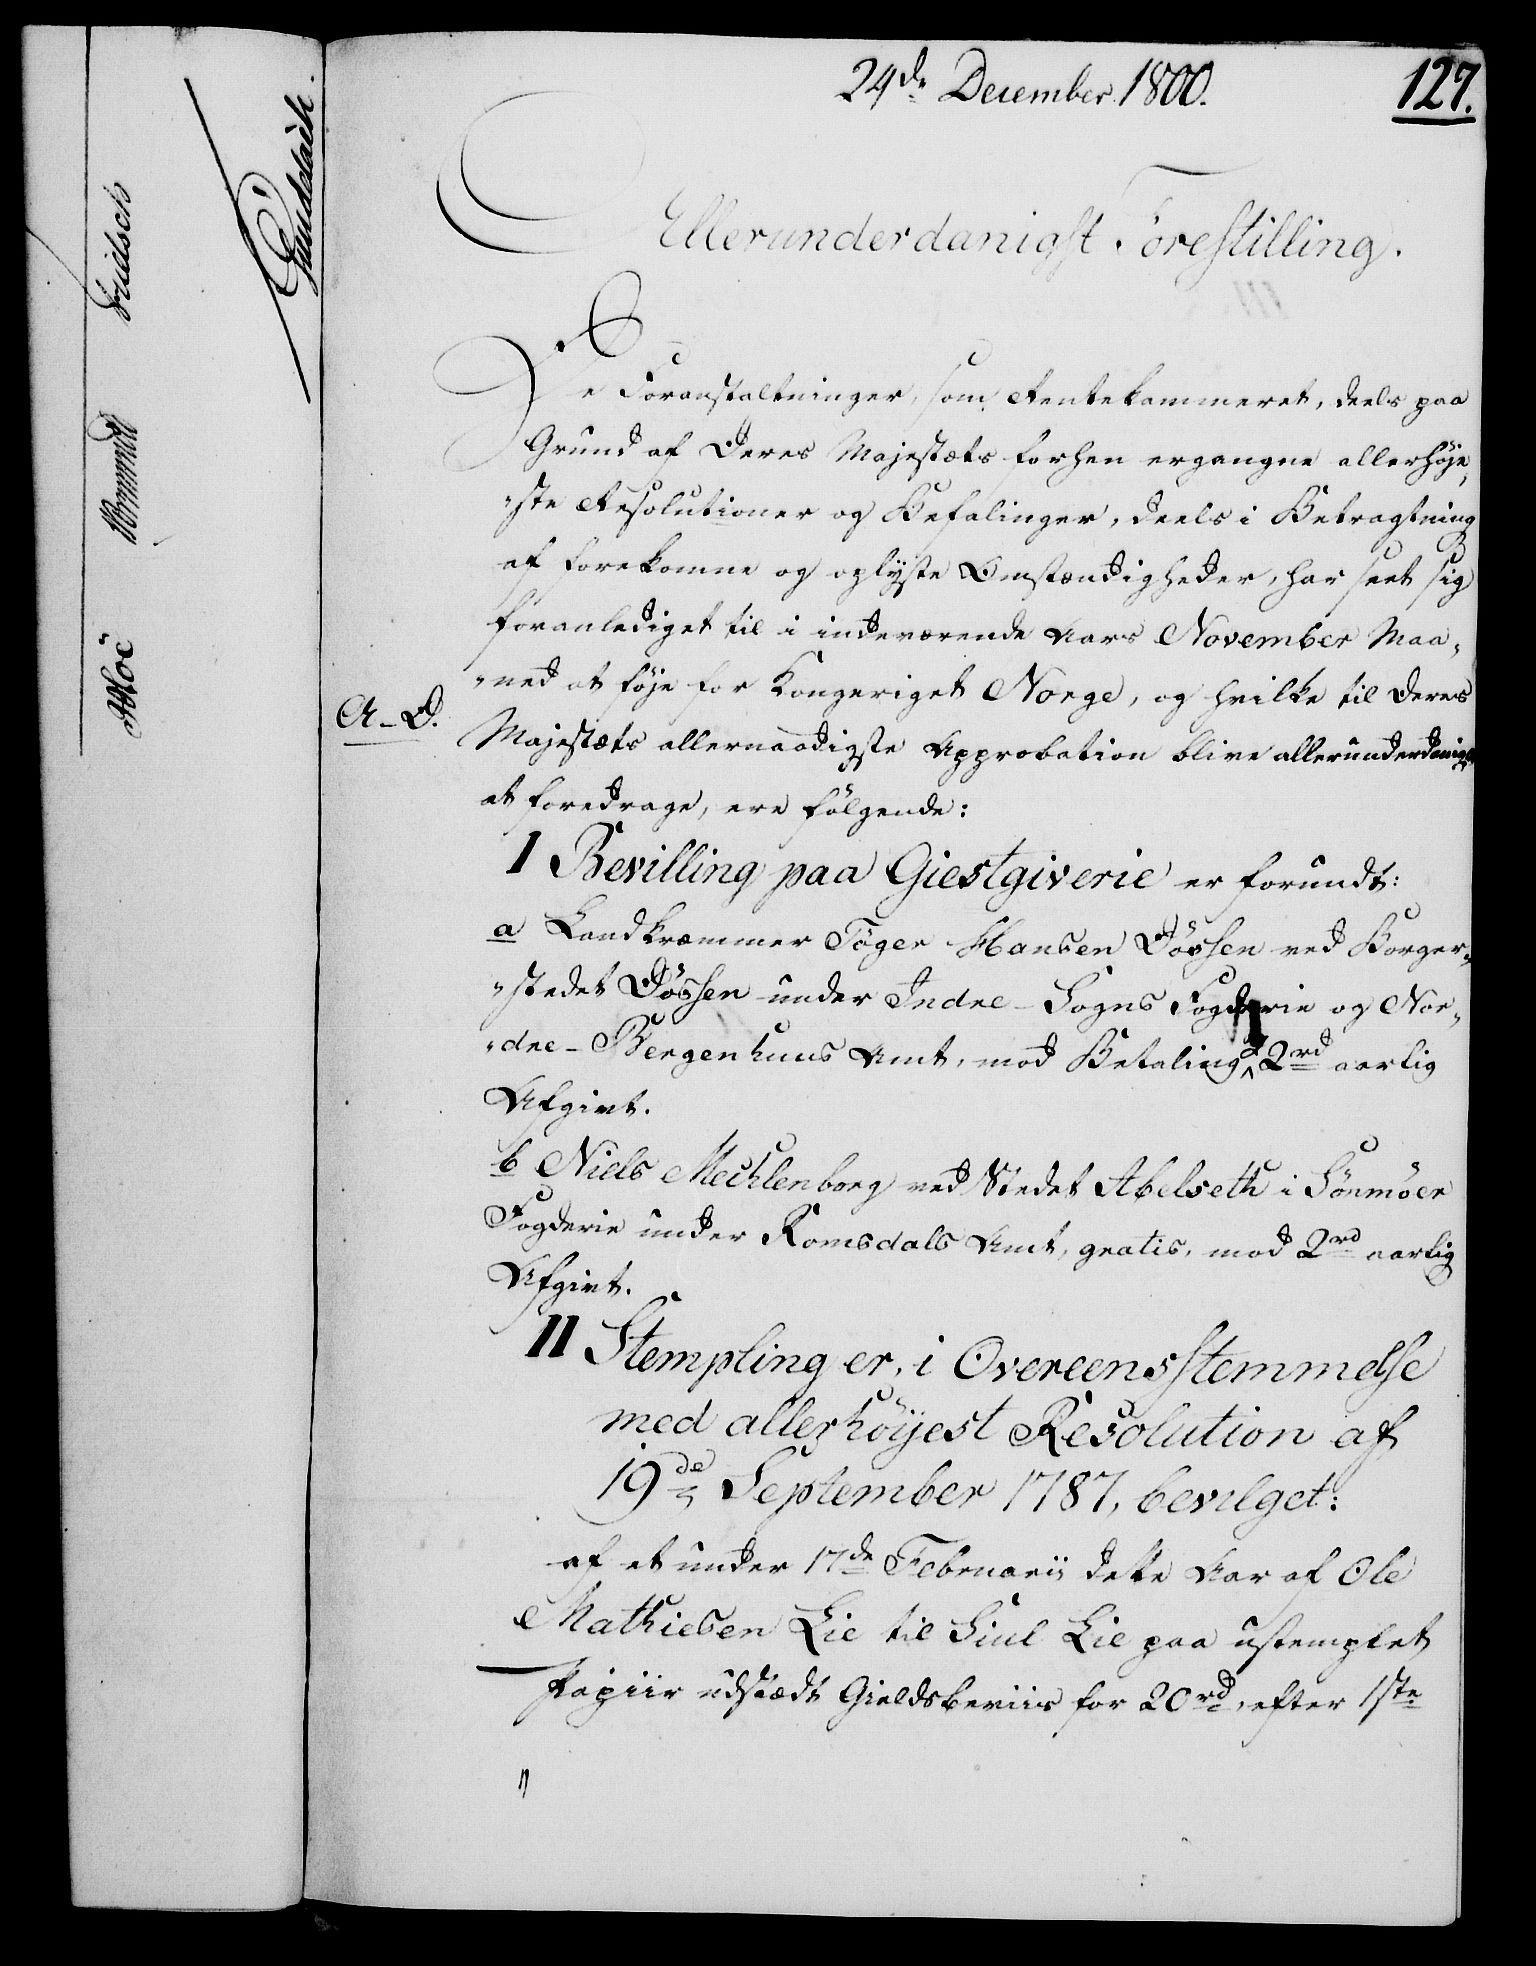 24de December 1800.
127.
Allerunderdanigst Forestilling.
De Foranstaltninger, som Rentekammeret, deels paa
Grund af Deres Majestæts forhen ergangne allerhöje„
„ste Resolutioner og Befalinger, deels i Betragtning
af forekomne og oplyste Omstændigheder, har seet sig
foranlediget til i indeværende Aars November Maa„
„ned at föje for Kongeriget Norge, og hvilke til Deres
A-D.
Majestæts allernaadigste Approbation blive allerunderdanigst
at foredrage, ere fölgende:
I Bevilling paa Giestgiverie er forundt:
a Landkræmmer Töger Hansen Dösen ved Borger„
„stedet Dösen under Indre-Sogns Fogderie og Nor„
„dre-Bergenhuus Amt, mod Betaling af 2rd aarlig
Afgivt.
b Niels Mechlenborg ved Stedet Abelseth i Sönmöer
Fogderie under Romsdals Amt, gratis, mod 2rd aarlig
Afgivt.
II Stempling er, i Overeensstemmelse
med allerhöyest Resolution af
19de September 1787, bevilget:
af et under 17de Februarii dette Aar af Ole
Mathiesen Lie til Siul Lie paa ustemplet
Papiir udstædt Gieldsbeviis for 20rd, efter 1ste